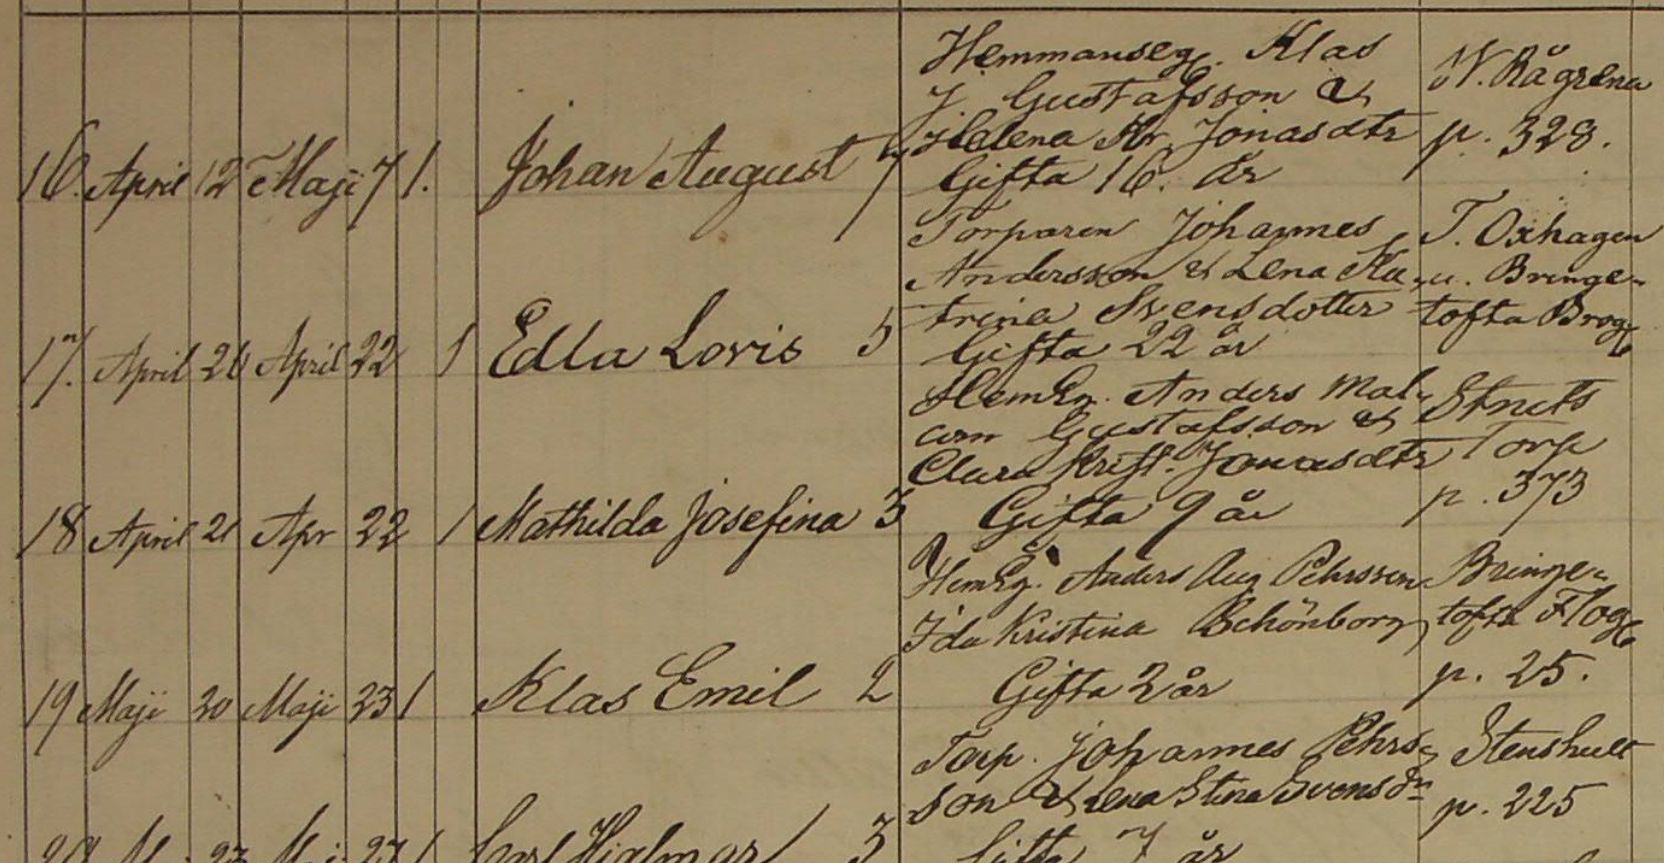 Hemmanseg. Klas
J. Gustafsson &
Helena Kr. Jonasdtr
16. April 12 Maji 7 1. Johan August 7 Gifta 16. år
W. Rågrena
p. 328.
Torparen Johannes
Andersson & Lena Ka-
trina Svensdotter
17. April 21 April 22 1 Edla Lovis 5 Gifta 22 år
T. Oxhagen
u. Bringe-
tofta Brog
HemEg. Anders Mal-
com Gustafsson &
Clara Krist. Jonasdtr
18 April 21 Apr 22 1 Mathilda Josefina 3 Gifta 9 år
Torp
p. 373
HemEg. Anders Aug Pehrsson
Ida Kristina Schönborg
19 Maji 20 Maji 23 1 Klas Emil 2 Gifta 2 år
Bringe-
tofta Flog
p. 25.
Torp. Johannes Pehrs-
son & Lena Stina Svensdr
20 23 27 1 Carl Hjalmar 3 Gifta 7 år
Stenshult
p. 225